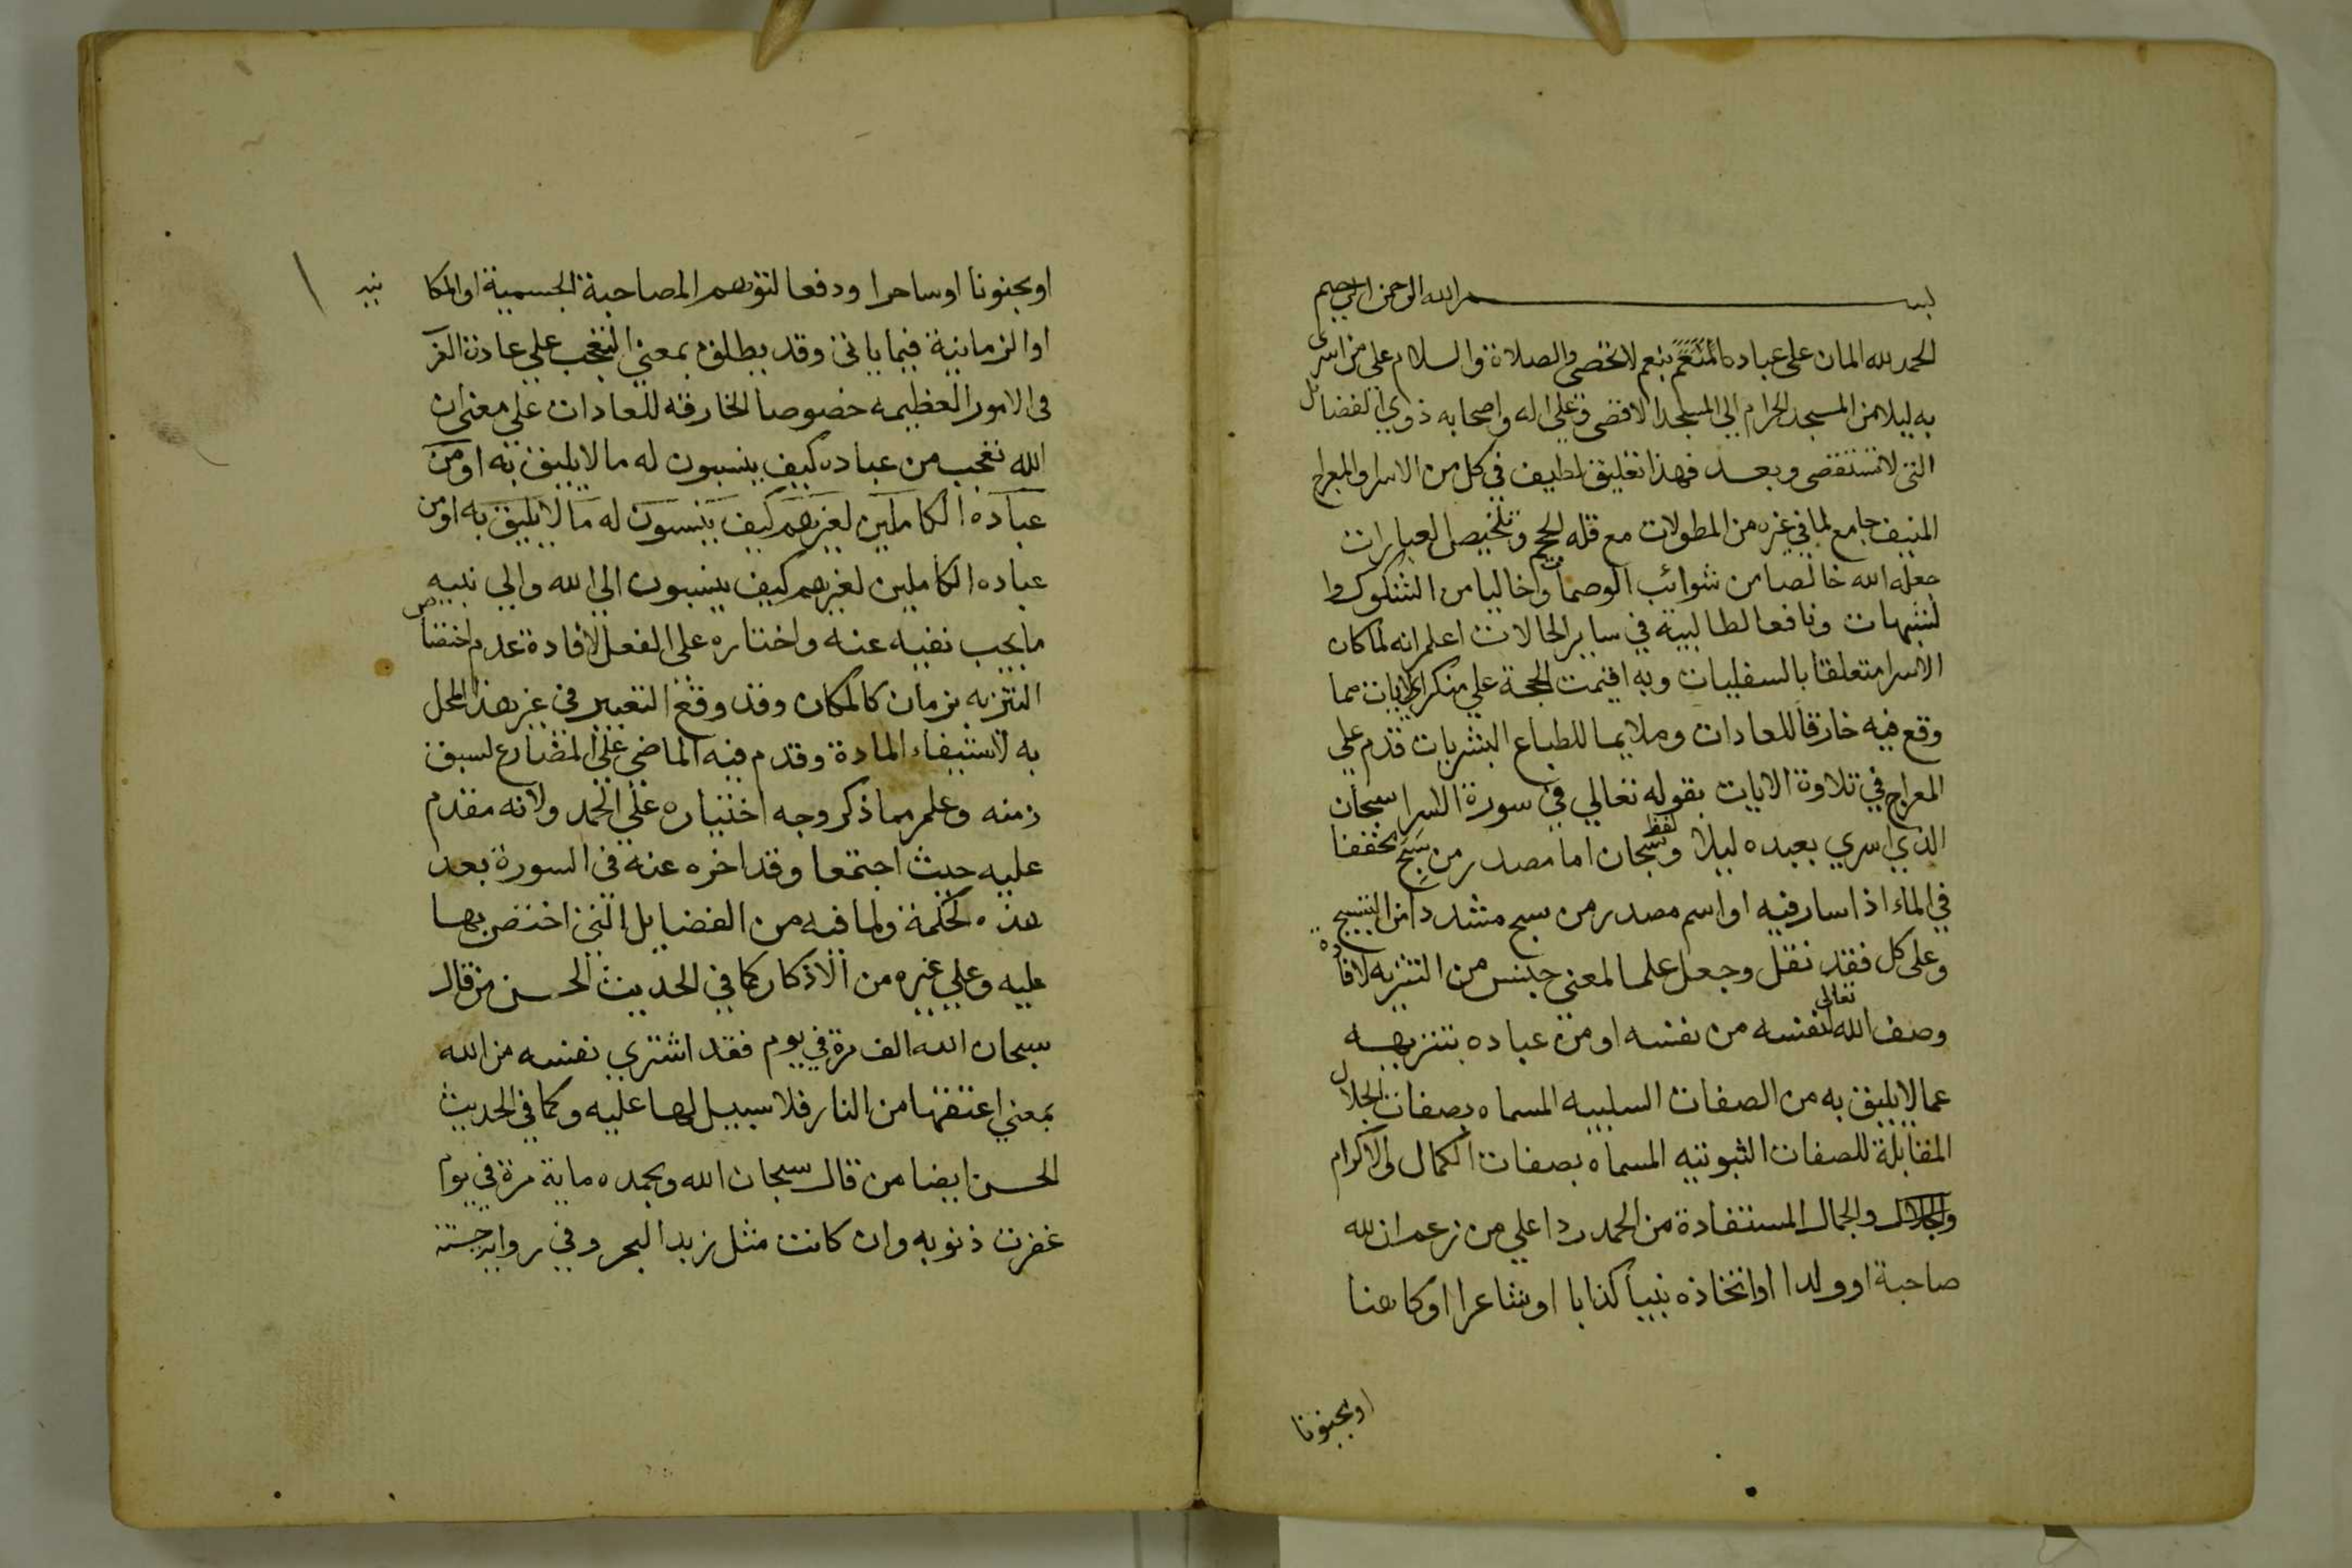 بسم الله الرحمن الرحيم
الحمد لله المان على عباده المنعم بنعم لا تحصى والصلاة والسلام على من اسرى
به ليلا من المسجد الحرام الي المسجد الاقصى وعلى اله واصحابه ذوي الفضائل
التى لا تستقصى وبعد فهذا تعليق لطيف في كل من الاسرا والمعراج
المنيف جامع لما في غيره من المطولات مع قله الحجم وتلخيص العبارات
جعله الله خالصا من شوائب الوصمات واخاليا من الشكوك وا
لشبهات ونافعا لطالبيه في ساير الحالات اعلم انه لما كان
الاسرا متعلقا بالسفليات وبه اقيمت الحجة علي منكر الايات مما
وقع فيه خارقا للعادات وملايما للطباع البشريات قدم علي
المعراج في تلاوة الايات بقوله تعالي في سورة الاسرا سبحان
الذي اسري بعبده ليلا ولفظ سبحان اما مصدر من سبح مخففا
في الماء اذا سار فيه او اسم مصدر من سبح مشددا من التسبيح
وعلى كل فقد نقل وجعل علما لمعني جنس من التنزيه لافاده
وصف الله تعالى لنفسه من نفسه او من عباده بتنزيهه
عما لا يليق به من الصفات السلبيه المسماه بصفات الجلال
المقابلة للصفات الثبوتيه المسماه بصفات الكمال والاكرام
والجلال والجمال المستفادة من الحمد ردا علي من زعم ان لله
صاحبة او ولدا او اتخاذه نبيا كذابا او شاعرا او كاهنا
او مجنونا
او مجنونا او ساحرا ودفعا لتوهم المصاحبة الجسمية او المكا نيه
او الزمانية فيما ياتى وقد يطلق بمعني التعجب علي عادة العرب
فى الامور العظيمه خصوصا الخارقه للعادات علي معنى ان
الله تعجب من عباده كيف ينسبون له ما لا يليق به او من
عباده الكاملين لغيرهم كيف ينسبون له ما لا يليق به او من
عباده الكاملين لغيرهم كيف ينسبون الي الله والي نبيه
ما يجب نفيه عنه واختاره على الفعل لافادة عدم اختصاص
التنزيه بزمان كالمكان وقد وقع التعبير في غير هذا المحل
به لاستيفاء المادة وقدم فيه الماضي علي المضارع لسبق
زمنه وعلم مما ذكر وجه اختياره علي الحمد ولانه مقدم
عليه حيث اجتمعا وقد اخره عنه في السورة بعد
هذه لحكمة ولما فيه من الفضايل التي اختص بها
عليه وعلي غيره من الاذكار كما في الحديث الحسن من قال
سبحان الله الف مرة في يوم فقد اشتري نفسه من الله
بمعني اعتقها من النار فلا سبيل لها عليه وكما في الحديث
الحسن ايضا من قال سبحان الله وبحمده ماية مرة في يوم
غفرت ذنوبه وان كانت مثل زبد البحر وفي رواية